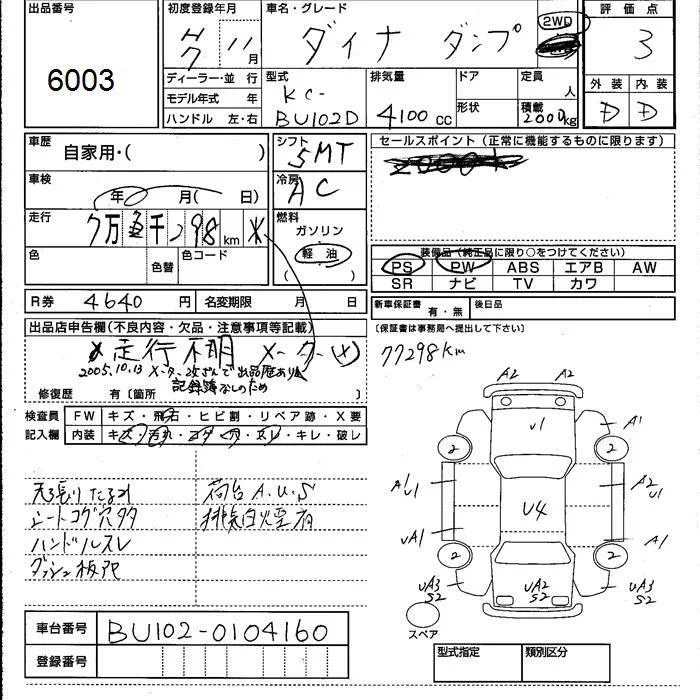 出品番号
6003
初度登録年月
H7 11 月
車名・グレード
ダイナ ダンプ
2WD
評価点
3
ディーラー・並 行
モデル年式 年
ハンドル 左・右
型式
KC-
BU102D
排気量
4100 cc
ドア
形状
定員
人
積載
2000kg
外装 内装
D D
車歴
自家用・( )
シフト
5MT
セールスポイント (正常に機能するものに限ります)
車検
年 月( 日)
冷房
AC
走行
7万 千 298 km
燃料
ガソリン
軽油
( )
色
色替
色コード
装備品(純正品に限り○をつけてください)
PS PW ABS エアB AW
SR ナビ TV カワ
R券 4640 円
名変期限 月 日
新車保証書
有・無
後日品
(保証書は事務局へ提出して下さい)
出品店申告欄(不良内容・欠品・注意事項等記載)
走行不明 メーター(X)
2005.10.13 メーター改ざんで出品歴あり
記録簿なしのため
77298km
修復歴 有〔箇所 〕
検査員
記入欄
FW キズ・飛石・ヒビ割・リペア跡・X要
内装 キズ・汚れ・コゲ・穴・スレ・キレ・破レ
天張りたるみ
シートコゲ穴タタ
ハンドルスレ
ダッシュ板凹
荷台A.U.S
排気白煙有
A2 A2
U1
A1
2 2
A1
U1
A2
U1
UA1
U4
A1
2 2
UA3
S2
UA2
S2
UA3
S2
スペア
車台番号
BU102-0104160
登録番号
型式指定 類別区分